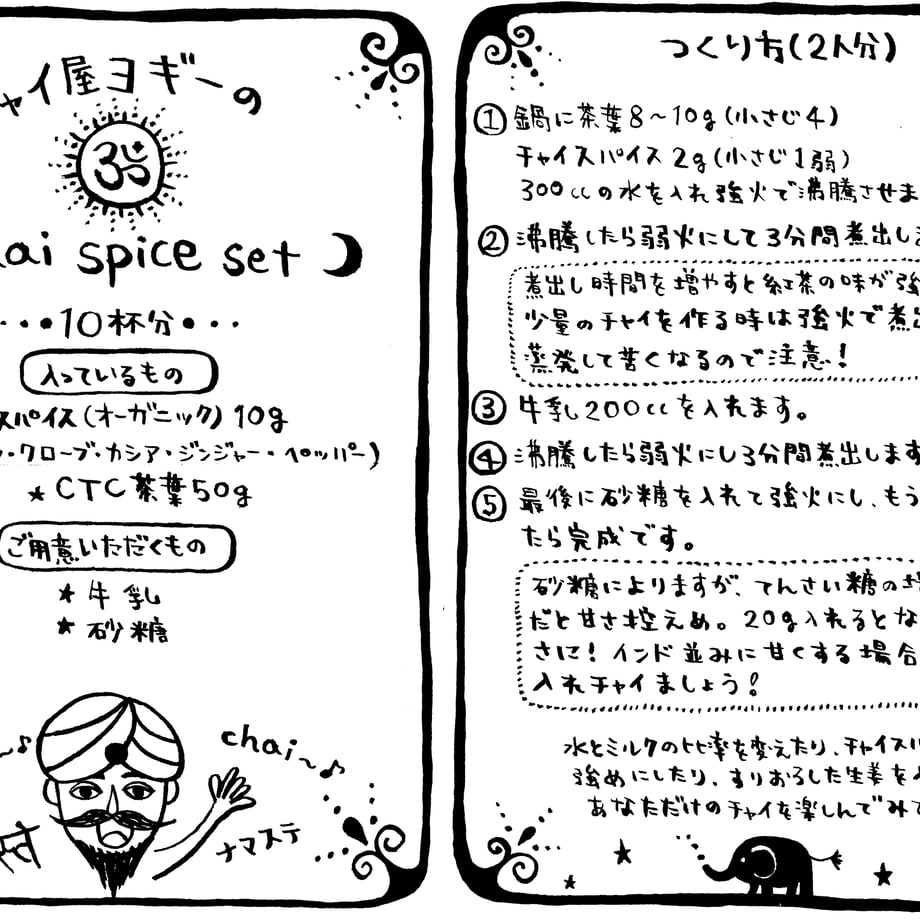 ャイ屋ヨギーの
ॐ
ai spice set
・・・10杯分・・・
入っているもの
スパイス(オーガニック)10g
・クローブ・カシア・ジンジャー・ペッパー)
★CTC茶葉50g
ご用意いただくもの
★牛乳
★砂糖
〜♪
chai〜♪
ナマステ
つくり方(2人分)
① 鍋に茶葉8〜10g(小さじ4)
チャイスパイス2g(小さじ1弱)
300ccの水を入れ強火で沸騰させま
② 沸騰したら弱火にして3分間煮出しま
煮出し時間を増やすと紅茶の味が強
少量のチャイを作る時は強火で煮出
蒸発して苦くなるので注意!
③ 牛乳200ccを入れます。
④ 沸騰したら弱火にし3分間煮出します
⑤ 最後に砂糖を入れて強火にし、もう
たら完成です。
砂糖によりますが、てんさい糖の場
だと甘さ控えめ。20g入れるとな
さに!インド並みに甘くする場合
入れチャイましょう!
水とミルクの比率を変えたり、チャイスパ
強めにしたり、すりおろした生姜を
あなただけのチャイを楽しんでみて